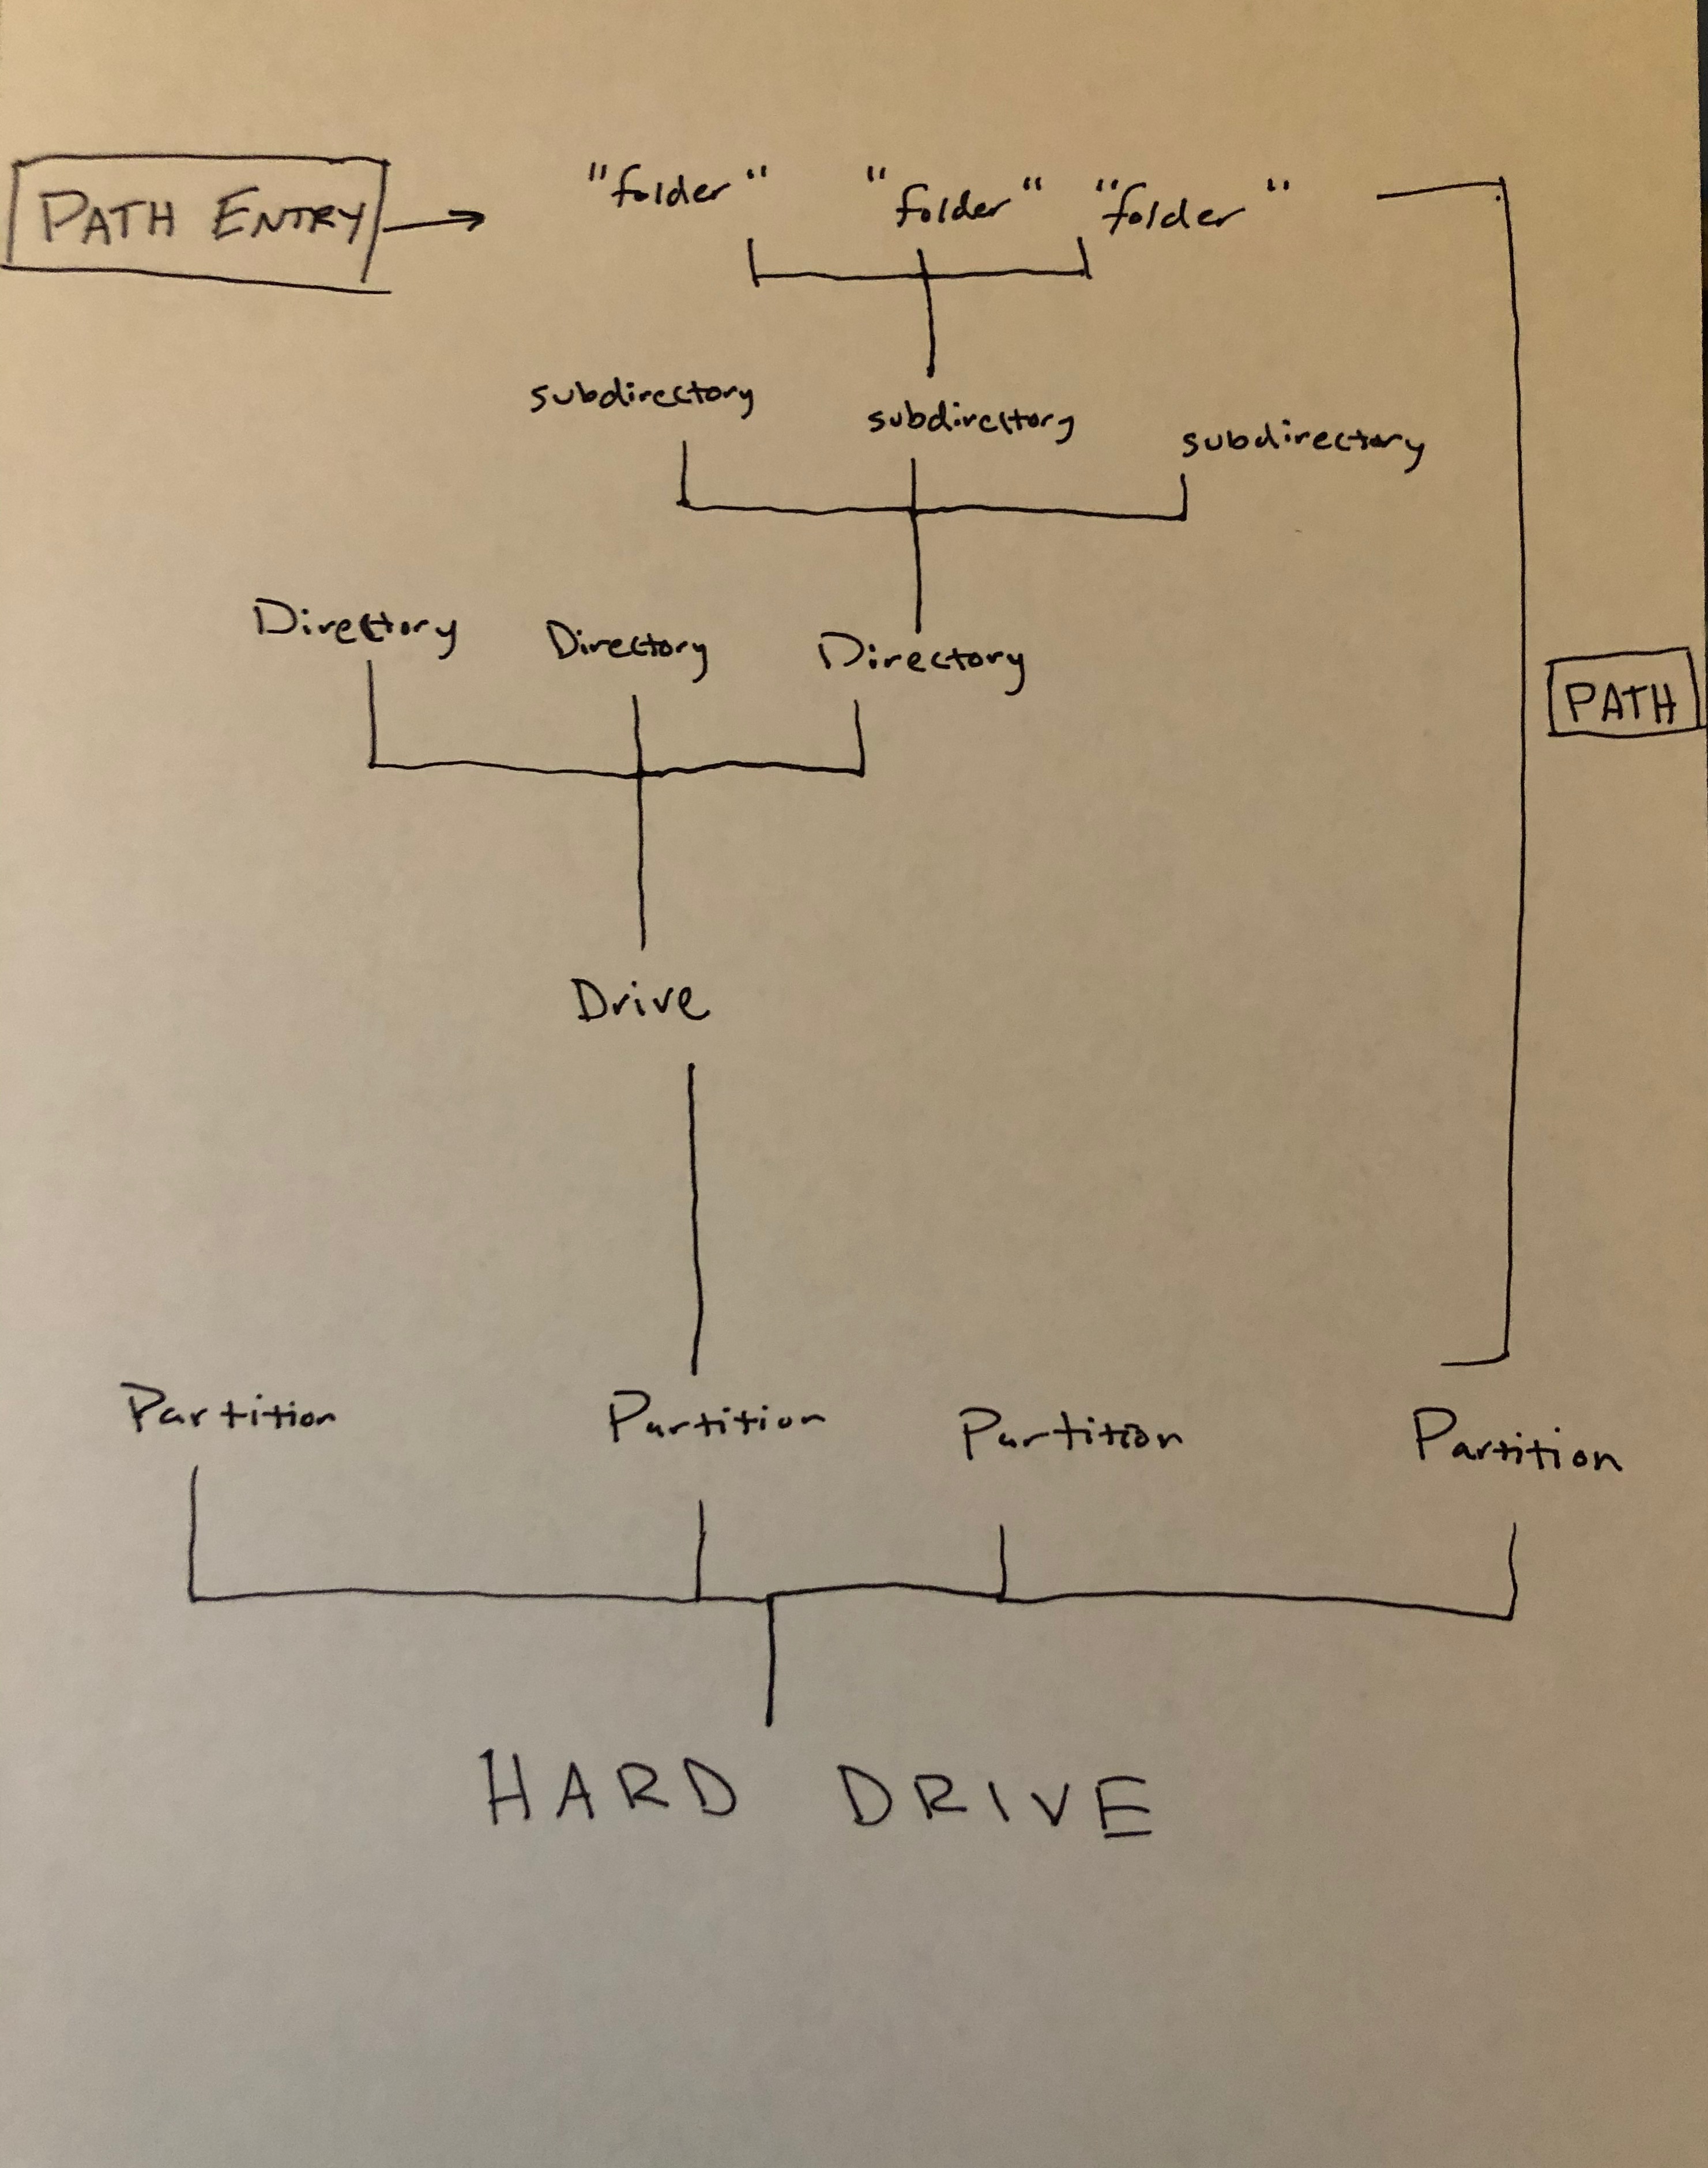 PATH ENTRY
"folder" "folder" "folder"
subdirectory subdirectory subdirectory
Directory Directory Directory
PATH
Drive
Partition Partition Partition Partition
HARD DRIVE